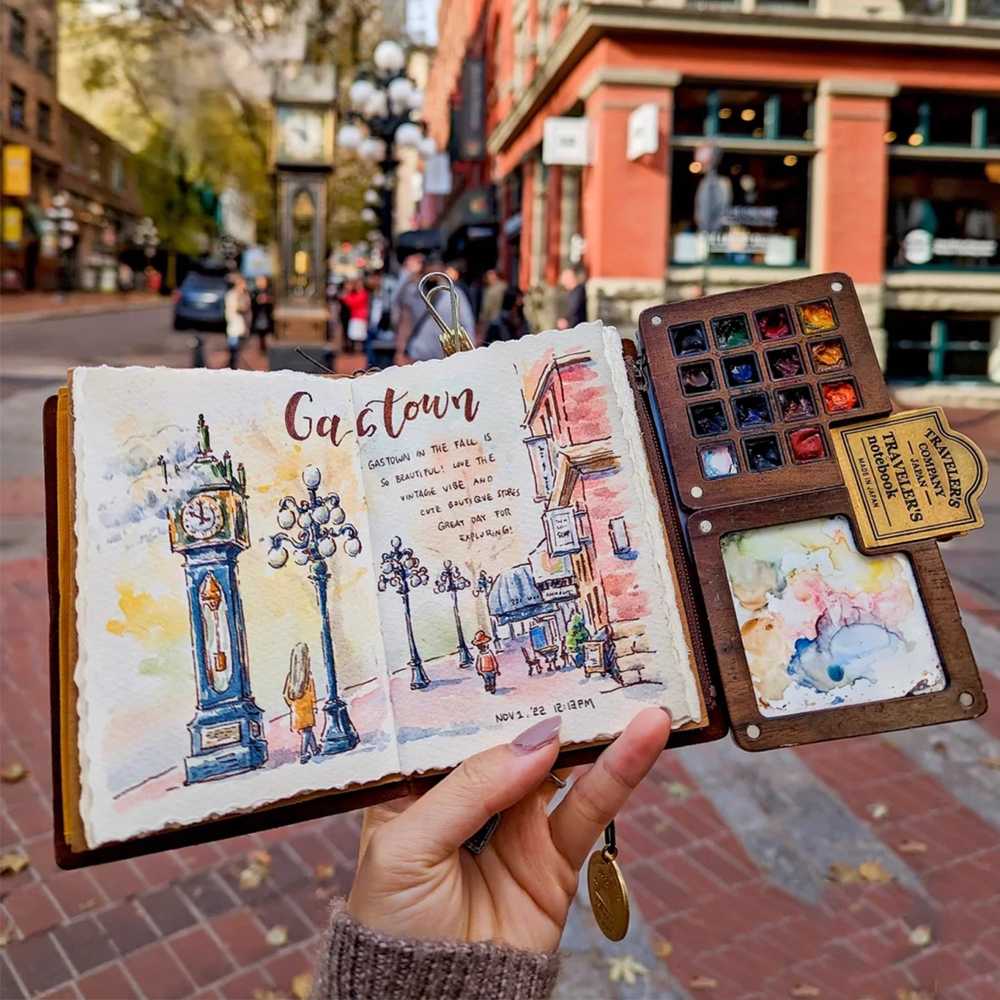 Gastown
GASTOWN IN THE FALL IS
SO BEAUTIFUL! LOVE THE
VINTAGE VIBE AND
CUTE BOUTIQUE STORES
GREAT DAY FOR
EXPLORING!
NOV 1. '22 12:12PM
TRAVELER'S
COMPANY
JAPAN
TRAVELER'S
notebook
MADE IN JAPAN